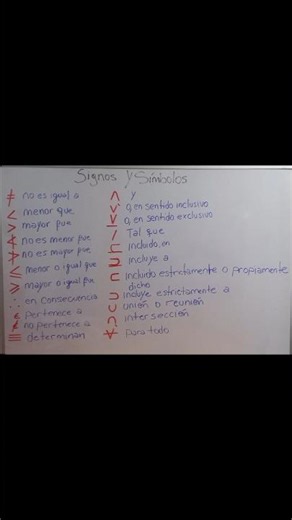 Signos y Símbolos
≠ no es igual a
< menor que
> mayor que
≮ no es menor que
≯ no es mayor que
≤ menor o igual que
≥ mayor o igual que
∴ en consecuencia
∈ pertenece a
∉ no pertenece a
≡ determinan
∧ y
∨ o, en sentido inclusivo
⊻ o, en sentido exclusivo
/ Tal que
⊆ incluido en
⊇ incluye a
⊂ incluido estrictamente o propiamente
dicho
⊃ incluye estrictamente a
∪ unión o reunión
∩ intersección
∀ para todo